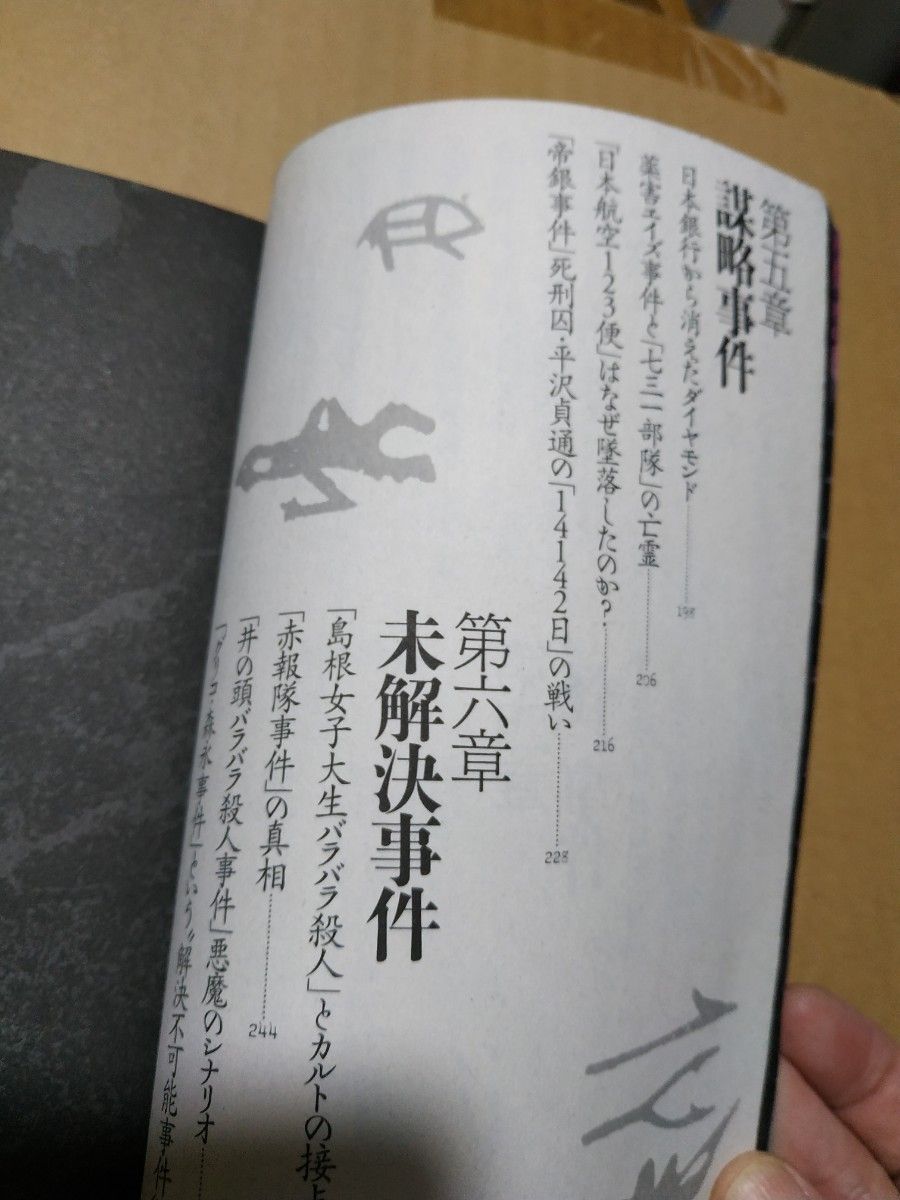 第五章
謀略事件
日本銀行から消えたダイヤモンド 198
薬害エイズ事件と「七三一部隊」の亡霊 206
「日本航空123便」はなぜ墜落したのか? 216
「帝銀事件」死刑囚・平沢貞通の「14142日」の戦い 228
第六章
未解決事件
「島根女子大生バラバラ殺人」とカルトの接点
「赤報隊事件」の真相 244
「井の頭バラバラ殺人事件」悪魔のシナリオ
「グリコ・森永事件」という"解決不可能事件